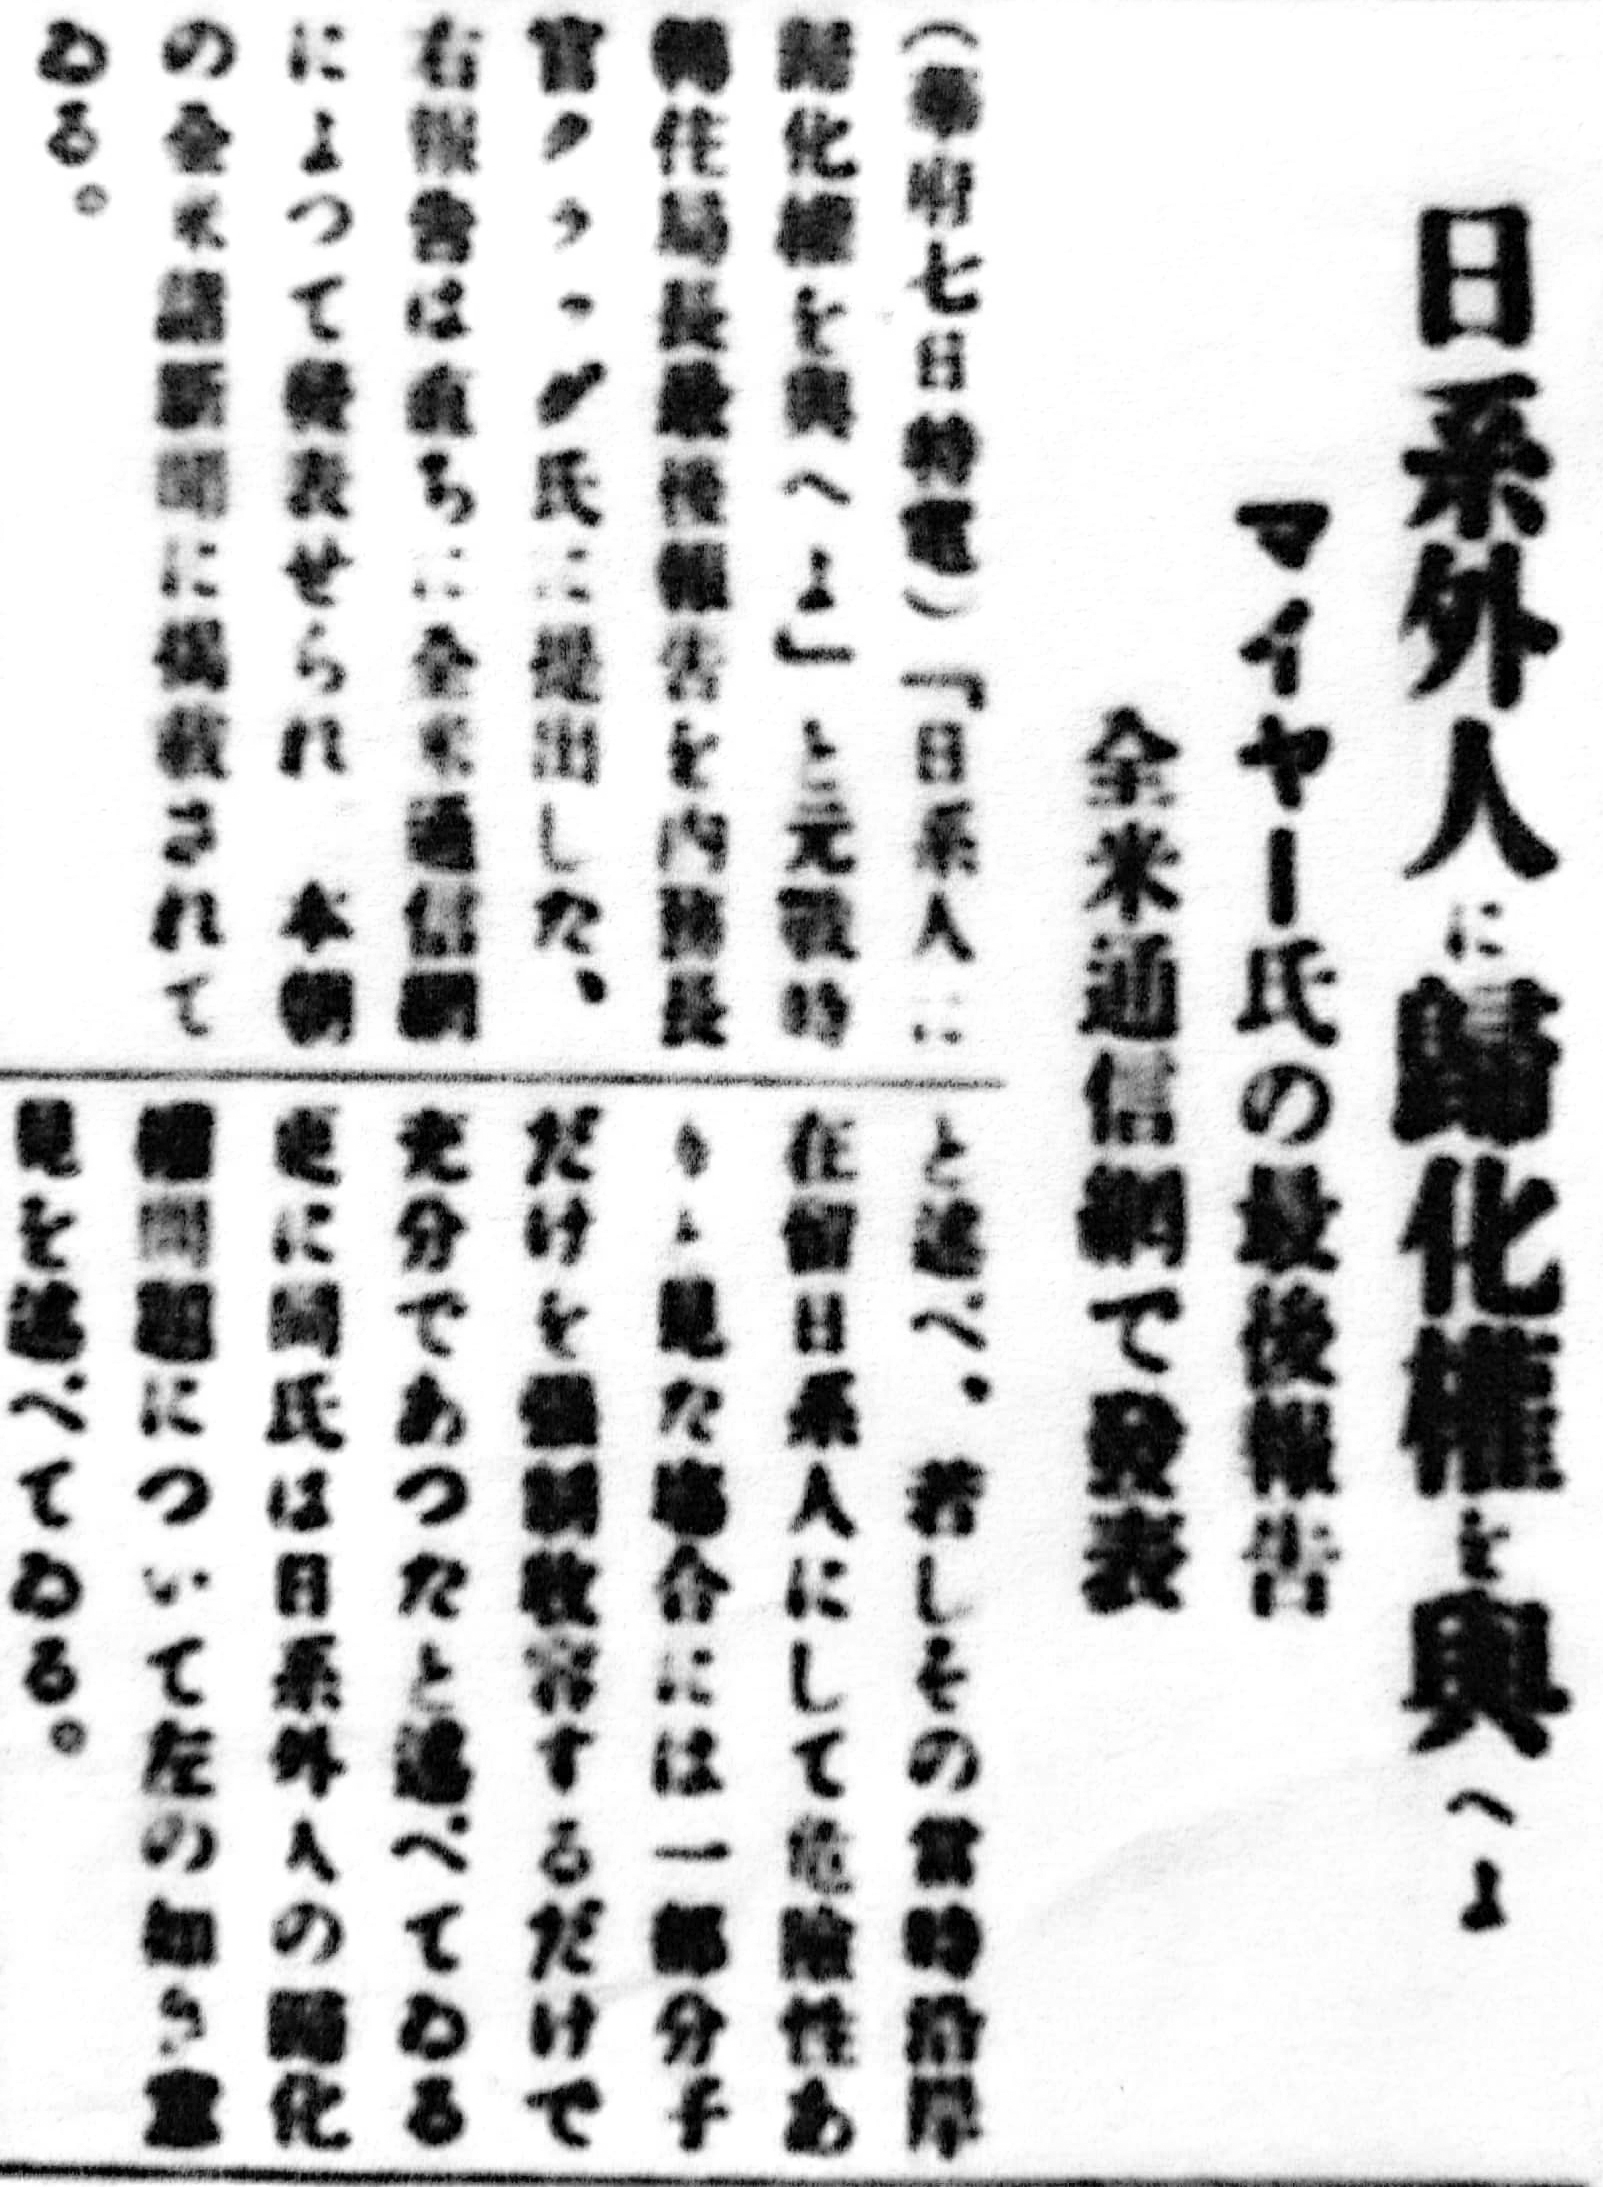 日系外人に歸化權を與へよ
マイヤー氏の最後報告
全米通信網で發表
(華府七日特電)「日系人に
歸化權を與へよ」と元戰時
轉住局長最後報告を内務長
官クラッグ氏に提出した、
右報告は直ちに全米通信網
によつて發表せられ 本朝
の全米諸新聞に掲載されて
ゐる。
と述べ、若しその當時沿岸
在留日系人にして危險性あ
りと見た場合には一部分子
だけを強制收容するだけで
充分であつたと述べてゐる
更に同氏は日系外人の歸化
權問題について左の如き意
見を述べてゐる。